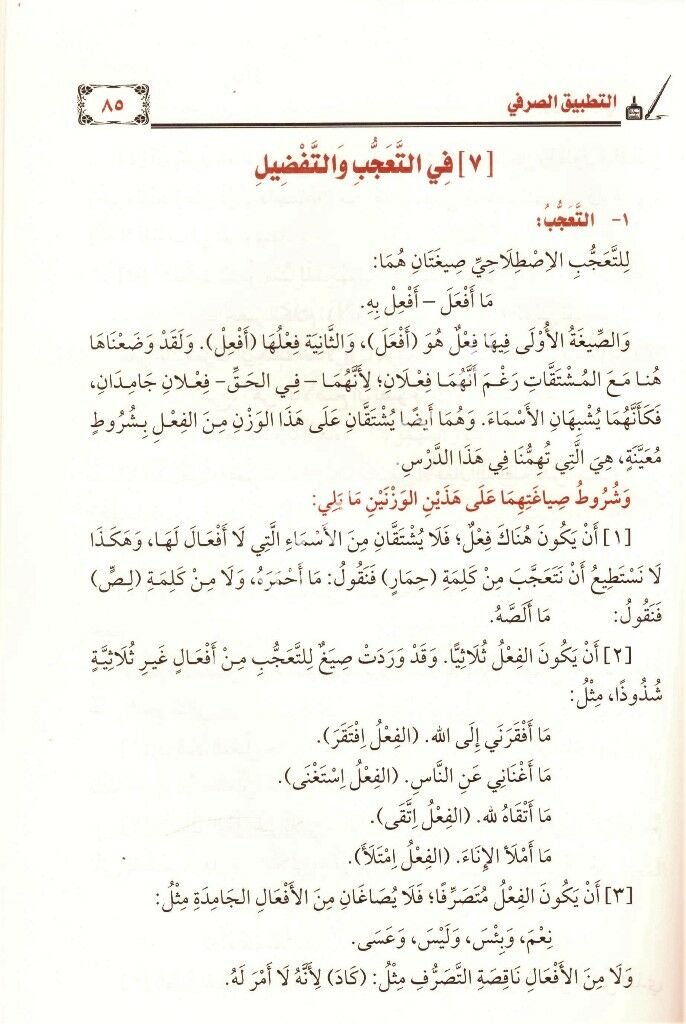 التطبيق الصرفي
٨٥
[٧] فِي التَّعَجُّبِ وَالتَّفْضِيلِ
١- التَّعَجُّبُ:
لِلتَّعَجُّبِ الاِصْطِلَاحِيِّ صِيغَتَانِ هُمَا:
مَا أَفْعَلَ – أَفْعِلْ بِهِ.
وَالصِّيغَةُ الأُوْلَى فِيهَا فِعْلٌ هُوَ (أَفْعَلَ)، وَالثَّانِيَة فِعْلُهَا (أَفْعِلْ). وَلَقَدْ وَضَعْنَاهَا
هُنا مَعَ المُشْتَقَّاتِ رَغْمَ أَنَّهُمَا فِعْلَان؛ لِأَنَّهُمَا – فِي الحَقِّ- فِعْلان جَامِدَانِ،
فَكَأَنَّهُمَا يُشْبِهَانِ الأَسْمَاءَ. وَهُمَا أَيضًا يُشْتَقَّانِ عَلَى هَذَا الوَزْنِ مِنَ الفِعْلِ بِشُرُوطٍ
مُعَيَّنَةٍ، هِيَ الَّتِي تُهِمُّنَا فِي هَذَا الدَّرْسِ.
وَشُرُوطُ صِيَاغَتِهِمَا عَلَى هَذَيْنِ الوَزْنَيْنِ مَا يَلِي:
[١] أَنْ يَكُونَ هُنَاكَ فِعْلٌ؛ فَلَا يُشْتَقَّانِ مِنَ الأَسْمَاءِ الَّتِي لَا أَفْعَالَ لَهَا، وَهَكَذَا
لَا نَسْتَطِيعُ أَنْ نَتَعَجَّبَ مِنْ كَلِمَةِ (حِمَارٍ) فَنَقُولُ: مَا أَحْمَرَهُ، وَلَا مِنْ كَلِمَةِ (لِصٍّ)
فَنَقُولُ: مَا أَلَصَّهُ.
[٢] أَنْ يَكُونَ الفِعْلُ ثُلَاثِيًّا. وَقَدْ وَرَدَتْ صِيَغٌ لِلتَّعَجُّبِ مِنْ أَفْعَالٍ غَيرِ ثُلَاثِيَّةٍ
شُذُوذًا، مِثْلُ:
مَا أَفْقَرَنِي إِلَى الله. (الفِعْلُ اِفْتَقَرَ).
مَا أَغْنَانِي عَنِ النَّاسِ. (الفِعْلُ اِسْتَغْنَى).
مَا أَتْقَاهُ لله. (الفِعْلُ اِتَّقَى).
مَا أَمْلَأَ الإِنَاءَ. (الفِعْلُ اِمْتَلَأَ).
[٣] أَنْ يَكُونَ الفِعْلُ مُتَصَرِّفًا؛ فَلَا يُصَاغَانِ مِنَ الأَفْعَالِ الجَامِدَةِ مِثْلُ:
نِعْمَ، وَبِئْسَ، وَلَيْسَ، وَعَسَى.
وَلَا مِنَ الأَفْعَالِ نَاقِصَةِ التَّصَرُّفِ مِثْلُ: (كَادَ) لِأَنَّهُ لَا أَمْرَ لَهُ.